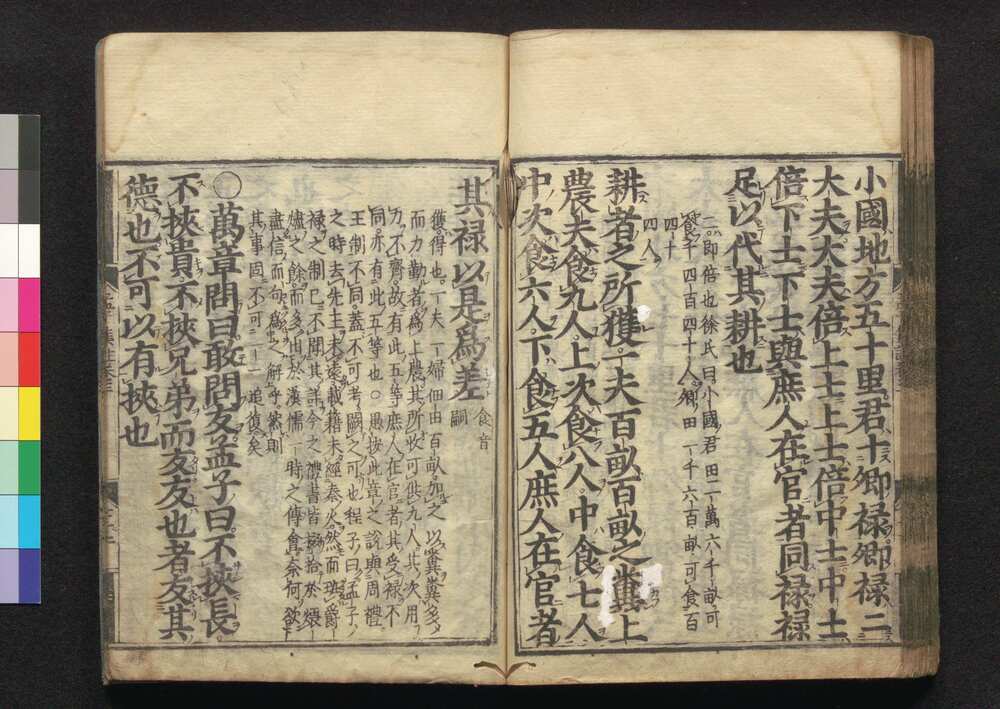 小國地方五十里君十卿禄卿禄二
大夫大夫倍上士上士倍中士中士
倍下士下士與庶人在官者同禄禄
足以代其耕也
二即倍也徐氏曰小國君田二萬六千畝可
食千四百四十人卿田一千六百畝可食百
四十
四人
耕者之所獲一夫百畝百畝之糞上
農夫食九人上次食八人中食七人
中次食六人下食五人庶人在官者
其禄以是爲差
食音
嗣
獲得也一夫一婦佃田百畝加之以糞糞多
而力勤者爲上農其所收可供九人其次用
力不齊故有此五等庶人在官者其受禄不
同亦有此五等也○愚按此章之說與周禮
王制不同蓋不可考闕之可也程子曰孟子
之時去先王未遠載籍未經秦火然而班爵
禄之制已不聞其詳今之禮書皆掇拾於煨
燼之餘而多出於漢儒一時之傳會奈何欲
盡信而句爲之解乎然則
其事固不可一一追復矣
○萬章問曰敢問友孟子曰不挾長
不挾貴不挾兄弟而友友也者友其
德也不可以有挾也